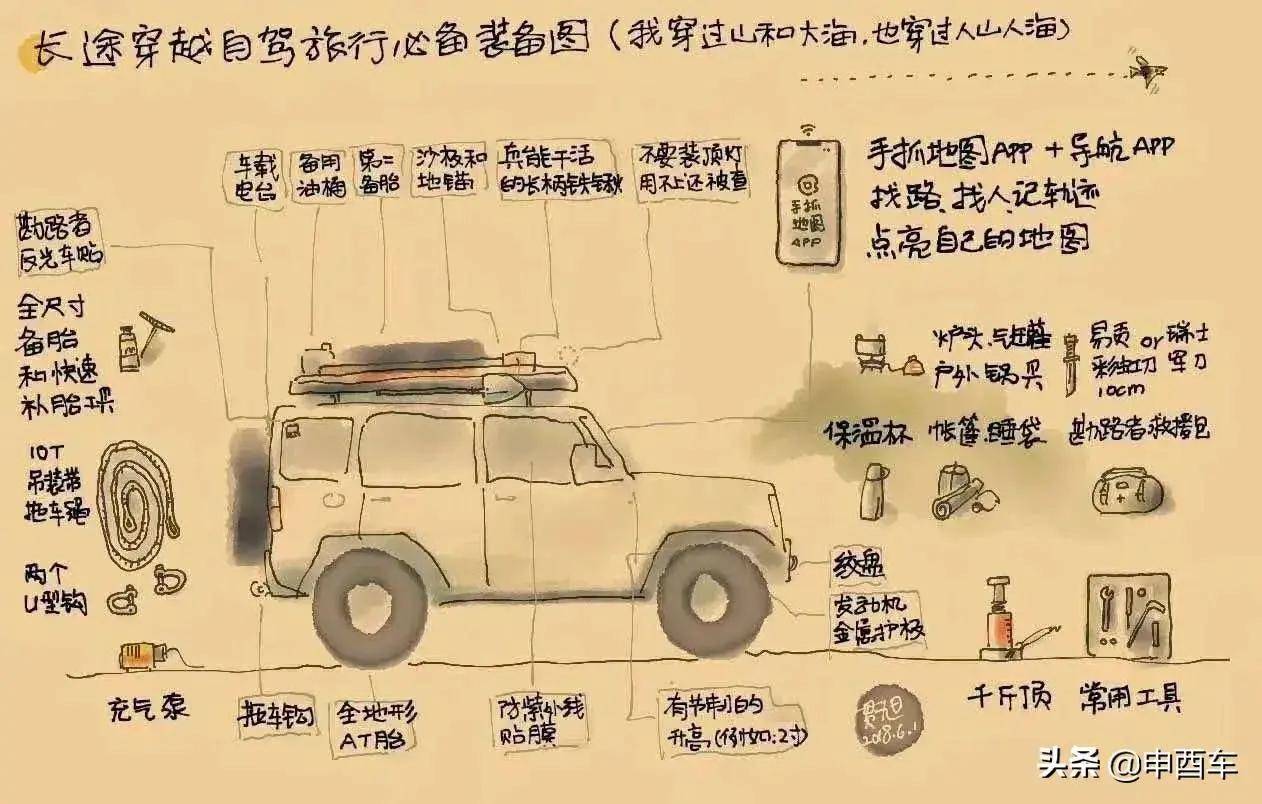 长途穿越自驾旅行必备装备图(我穿过山和大海,也穿过人山人海)
车载
电台
备用
油桶
第二
备胎
沙板和
地锚
真能干活
的长柄铁锹
不要装顶灯
用不上还被查
手抓
地图
APP
手抓地图APP + 导航APP
找路、找人、记轨迹
点亮自己的地图
勘路者
反光车贴
全尺寸
备胎
和快速
补胎工具
10T
吊装带
拖车绳
两个
U型钩
充气泵
炉头、气罐
户外锅具
易贡 or 瑞士
彩虹刀 军刀
10cm
保温杯
帐篷、睡袋
勘路者救援包
绞盘
发动机
金属护板
拖车钩
全地形
AT胎
防紫外线
贴膜
有节制的
升高(例如:2寸)
2018.6.1
千斤顶
常用工具
头条 @申酉车